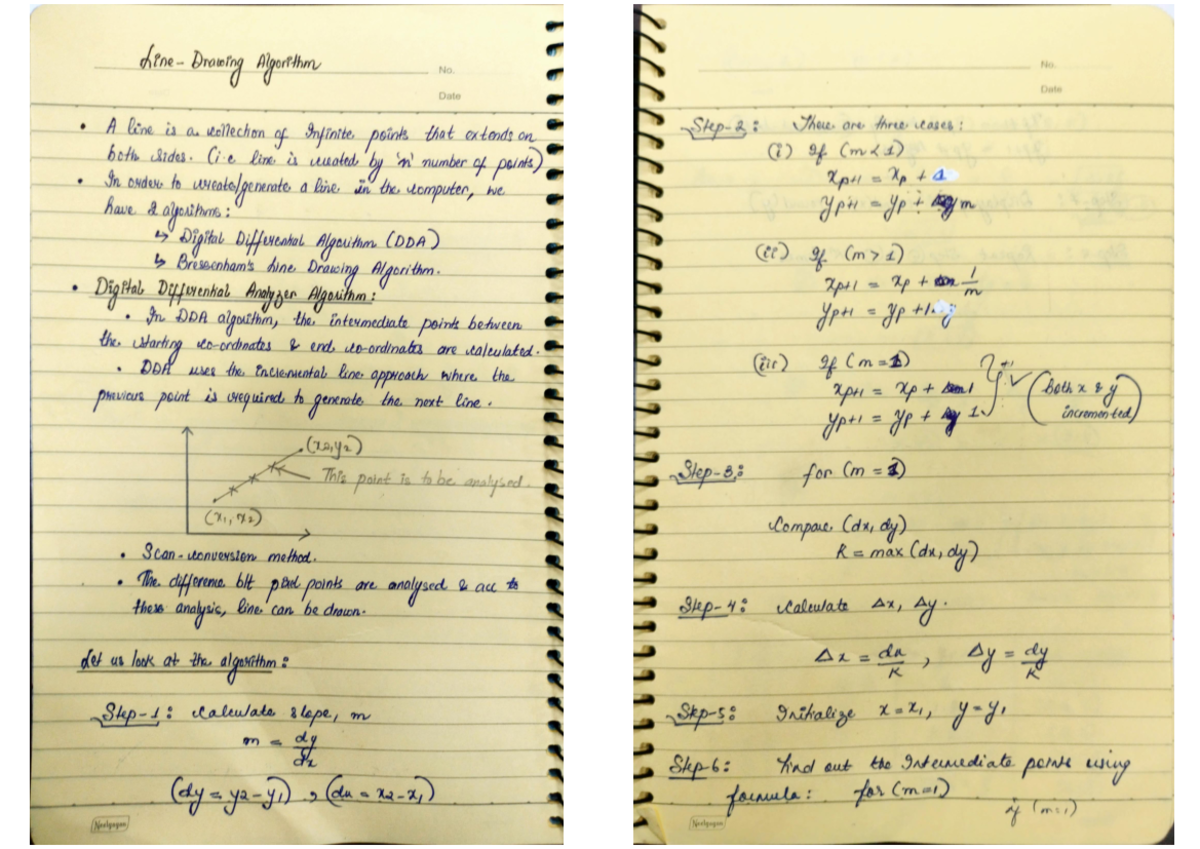 Line-Drawing Algorithm
No.
Date
• A line is a collection of Infinite points that extends on
both sides. (i.e line is created by 'n' number of points)
• In order to create/generate a line in the computer, we
have 2 algorithms:
↳ Digital Differential Algorithm (DDA)
↳ Bressenham's Line Drawing Algorithm.
• Digital Differential Analyzer Algorithm:
• In DDA algorithm, the intermediate points between
the starting co-ordinates & end co-ordinates are calculated.
• DDA uses the incremental line approach where the
previous point is required to generate the next line.
(x2,y2)
This point is to be analysed.
(x1, x2)
• Scan-conversion method.
• The difference b/t pixel points are analysed & acc to
these analysis, line can be drawn.
Let us look at the algorithm:
Step-1: Calculate slope, m
m = dy/dx
(dy = y2-y1) , (dx = x2-x1)
Neelgagan
No.
Date
Step-2: There are three cases:
(i) If (m<1)
xp+1 = xp + 1
yp+1 = yp + m
(ii) If (m>1)
xp+1 = xp + 1/m
yp+1 = yp + 1
(iii) If (m=1)
xp+1 = xp + 1
yp+1 = yp + 1
(both x & y
incremented)
Step-3: for (m = 1)
Compare (dx, dy)
K = max (dx, dy)
Step-4: Calculate Δx, Δy.
Δx = dx/K , Δy = dy/K
Step-5: Initialize x=x1, y=y1
Step-6: Find out the Intermediate points using
formula: for (m=1)
if (m=1)
Neelgagan